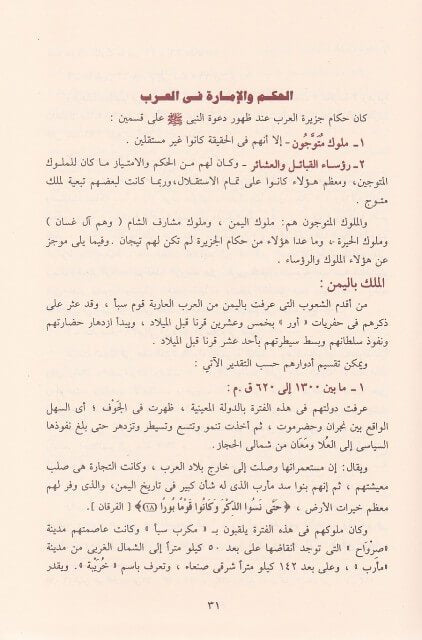 الحكم والإمارة فى العرب
كان حكام جزيرة العرب عند ظهور دعوة النبى ﷺ على قسمين :
١ـ ملوك مُتَوَّجُون ـ إلا أنهم فى الحقيقة كانوا غير مستقلين .
٢ـ رؤساء القبائل والعشائر ـ وكان لهم من الحكم والامتياز ما كان للملوك
المتوجين، ومعظم هـؤلاء كانـوا على تمام الاستقـلال،وربما كانت لبعضهم تبعية لملك
متـوج .
والملوك المتوجون هم: ملوك اليمن ، وملوك مشارف الشام ( وهم آل غسان )
وملوك الحيرة ،، وما عدا هؤلاء من حكام الجزيرة لم تكن لهم تيجان . وفيما يلى موجز
عن هؤلاء الملوك والرؤساء .
الملك باليمن:
من أقدم الشعوب التى عرفت باليمن من العرب العاربة قوم سبأ ، وقد عثر على
ذكرهم فى حفريات « أور » بخمس وعشرين قرنا قبل الميلاد ، ويبدأ ازدهار حضارتهم
ونفوذ سلطانهم وبسط سيطرتهم بأحد عشر قرنا قبل الميلاد .
ويمكن تقسيم أدوارهم حسب التقدير الآتي :
١ ـ ما بين ١٣٠٠ إلى ٦٢٠ ق . م :
عرفت دولتهم فى هذه الفترة بالدولة المعينية ، ظهرت فى الجَوْف ؛ أى السهل
الواقع بين نجران وحضرموت ، ثم أخذت تنمو وتتسع وتسيطر وتزدهر حتى بلغ نفوذها
السياسى إلى العُلا ومَعَان من شمالى الحجاز.
ويقال: إن مستعمراتها وصلت إلى خارج بلاد العرب ، وكانت التجارة هى صلب
معيشتهم ، ثم إنهم بنوا سد مأرب الذى له شأن كبير فى تاريخ اليمن، والذى وفر لهم
معظم خيرات الأرض ، ﴿حَتَّىٰ نَسُوا الذِّكْرَ وَكَانُوا قَوْمًا بُورًا (١٨)﴾ [ الفرقان ].
وكان ملوكهم فى هذه الفترة يلقبون بـ « مكرب سبأ » وكانت عاصمتهم مدينة
«صِرْوَاح » التى توجد أنقاضها على بعد ٥٠ كيلو متراً إلى الشمال الغربى من مدينة
«مأرب » ، وعلى بعد ١٤٢ كيلو متراً شرقى صنعاء ، وتعرف باسم « خُرَيْبة ». ويقدر
٣١